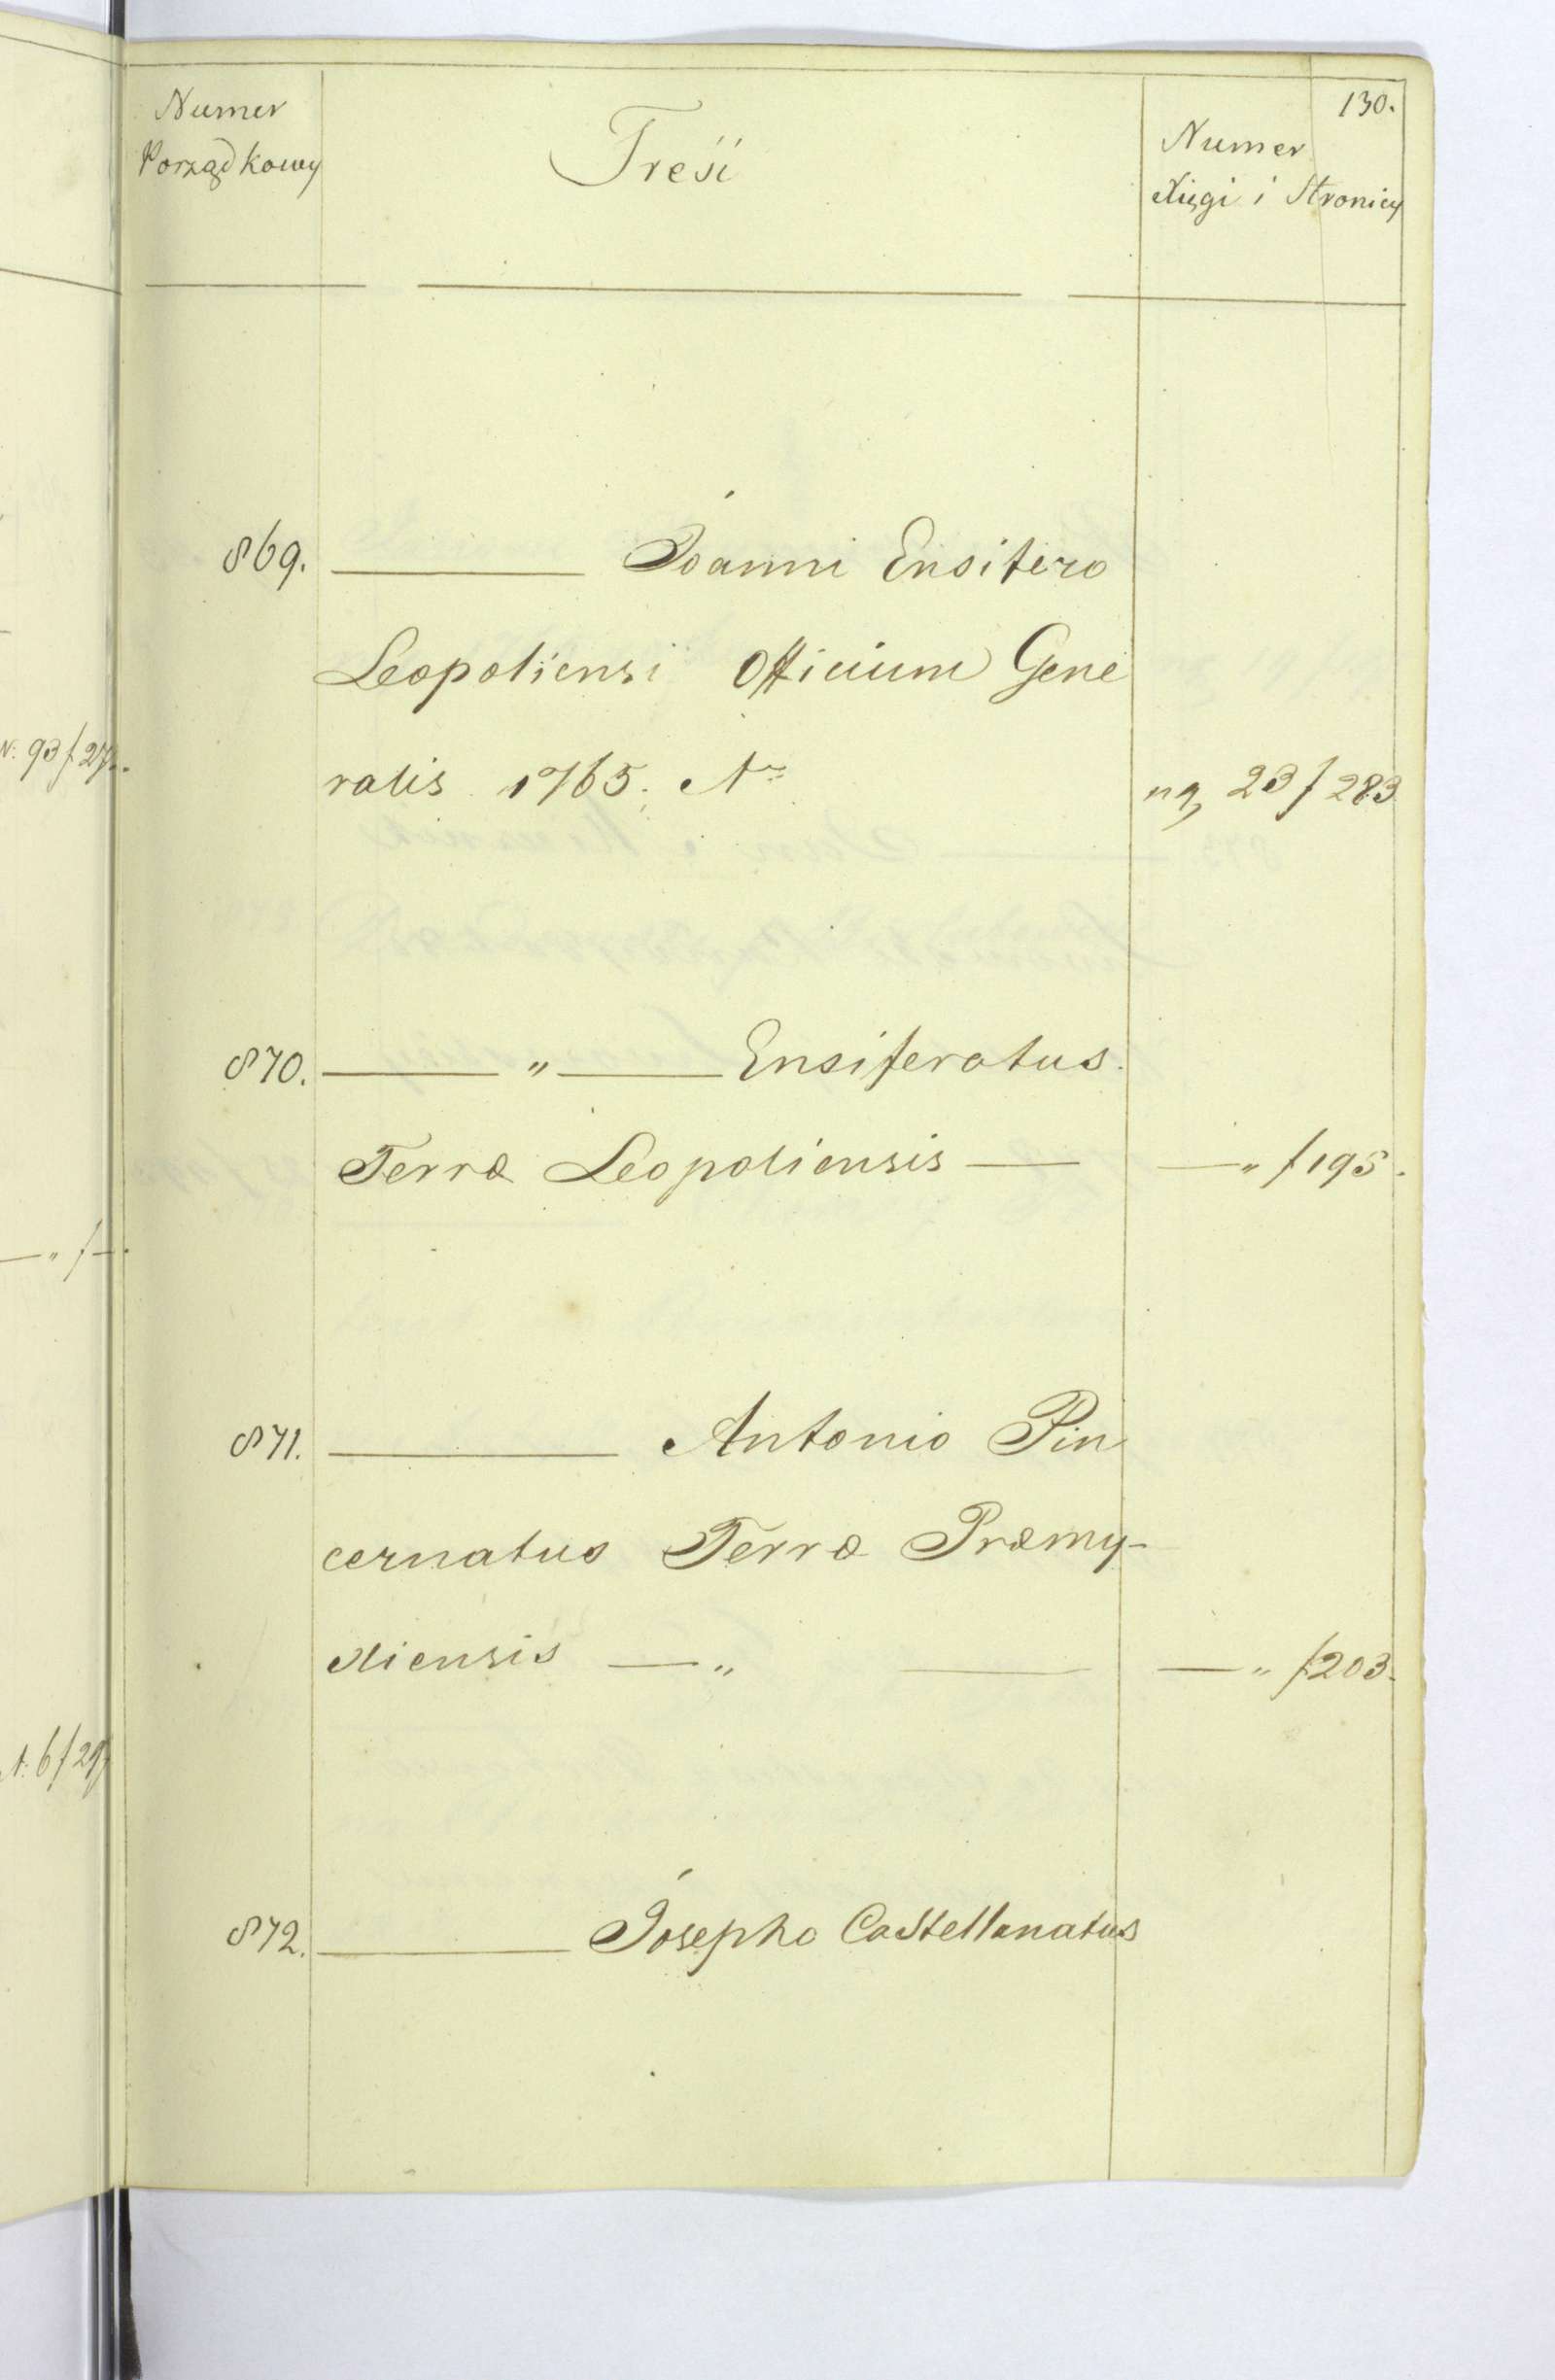 130.
Numer Porządkowy
Treść
Numer Xięgi i Stronicy
869. ——— Joanni Ensifero
Leopoliensi Officium Gene
ralis 1765. Nr 23 f 283
N: 93 f
870. —— " —— Ensiferatus.
Terræ Leopoliensis — —" f 195.
—" f —.
871. ——— Antonio Pin
cernatus Terræ Præmy-
sliensis —" —— —" f 203.
872. ——— Josepho Castellanatus